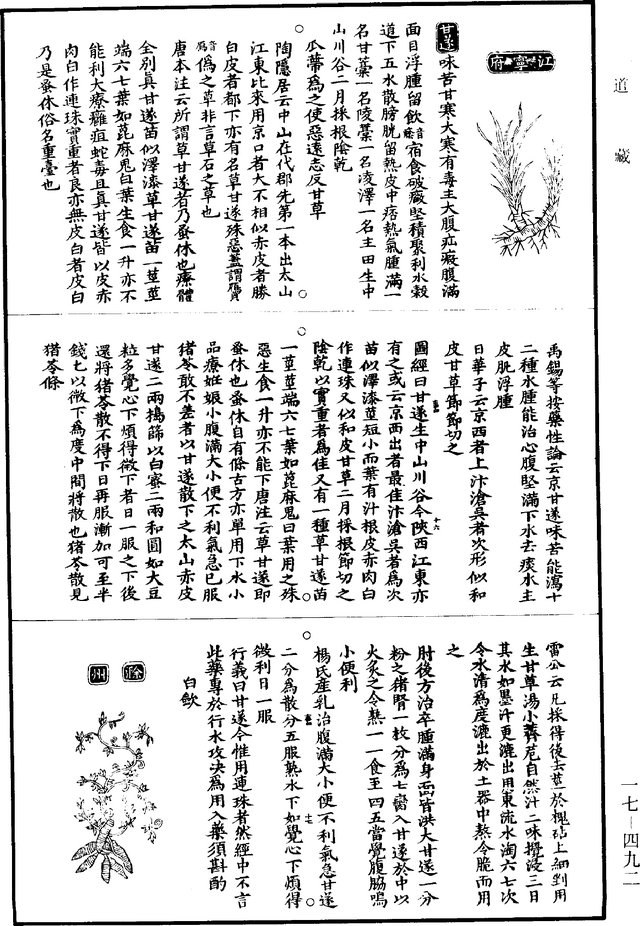 道藏
江寧府
甘遂
味苦甘寒大寒有毒主大腹疝瘕腹滿
面目浮腫留飲宿食破癥堅積聚利水穀
道下五水散膀胱留熱皮中痞熱氣腫滿一
名甘藁一名陵藁一名凌澤一名主田生中
山川谷二月採根陰乾
瓜蒂為之使惡遠志反甘草
陶隱居云中山在代郡先第一本出太山
江東比來用京口者大不相似赤皮者勝
白皮者都下亦有名草甘遂殊惡蓋謂贋
音
鴈偽之草非言草石之草也
唐本注云所謂草甘遂者乃蚤休也療體
全別真甘遂苗似澤漆草甘遂苗一莖莖
端六七葉如蓖麻鬼臼葉生食一升亦不
能利大療癰疽蛇毒且真甘遂皆以皮赤
肉白作連珠實重者良亦無皮白者皮白
乃是蚤休俗名重臺也
禹錫等按藥性論云京甘遂味苦能瀉十
二種水腫能治心腹堅滿下水去痰水主
皮肌浮腫
日華子云京西者上汴滄吳者次形似和
皮甘草節節切之
圖經曰甘遂生中山川谷今陝西江東亦
有之或云京西出者最佳汴滄吳者為次
苗似澤漆莖短小而葉有汁根皮赤肉白
作連珠又似和皮甘草二月採根節切之
陰乾以實重者為佳又有一種草甘遂苗
一莖莖端六七葉如蓖麻鬼臼葉用之殊
惡生食一升亦不能下唐注云草甘遂即
蚤休也蚤休自有條古方亦單用下水小
品療妊娠小腹滿大小便不利氣急已服
猪苓散不差者以甘遂散下之太山赤皮
甘遂二兩擣篩以白蜜二兩和圓如大豆
粒多覺心下煩得微下者日一服之下後
還將猪苓散不得下日再服漸加可至半
錢匕以微下為度中間將散也猪苓散見
猪苓條
雷公云凡採得後去莖於槐砧上細剉用
生甘草湯小薺苨自然汁二味攪浸三日
其水如墨汁更漉出用東流水淘六七次
令水清為度漉出於土器中熬令脆而用
之
肘後方治卒腫滿身面皆洪大甘遂一分
粉之猪腎一枚分為七臠入甘遂於中以
火炙之令熟一一食至四五當覺腹脇鳴
小便利
楊氏產乳治腹滿大小便不利氣急甘遂
二分為散分五服熟水下如覺心下煩得
微利日一服
衍義曰甘遂今惟用連珠者然經中不言
此藥專於行水攻決為用入藥須斟酌
白歛
滁州
一七—四九二